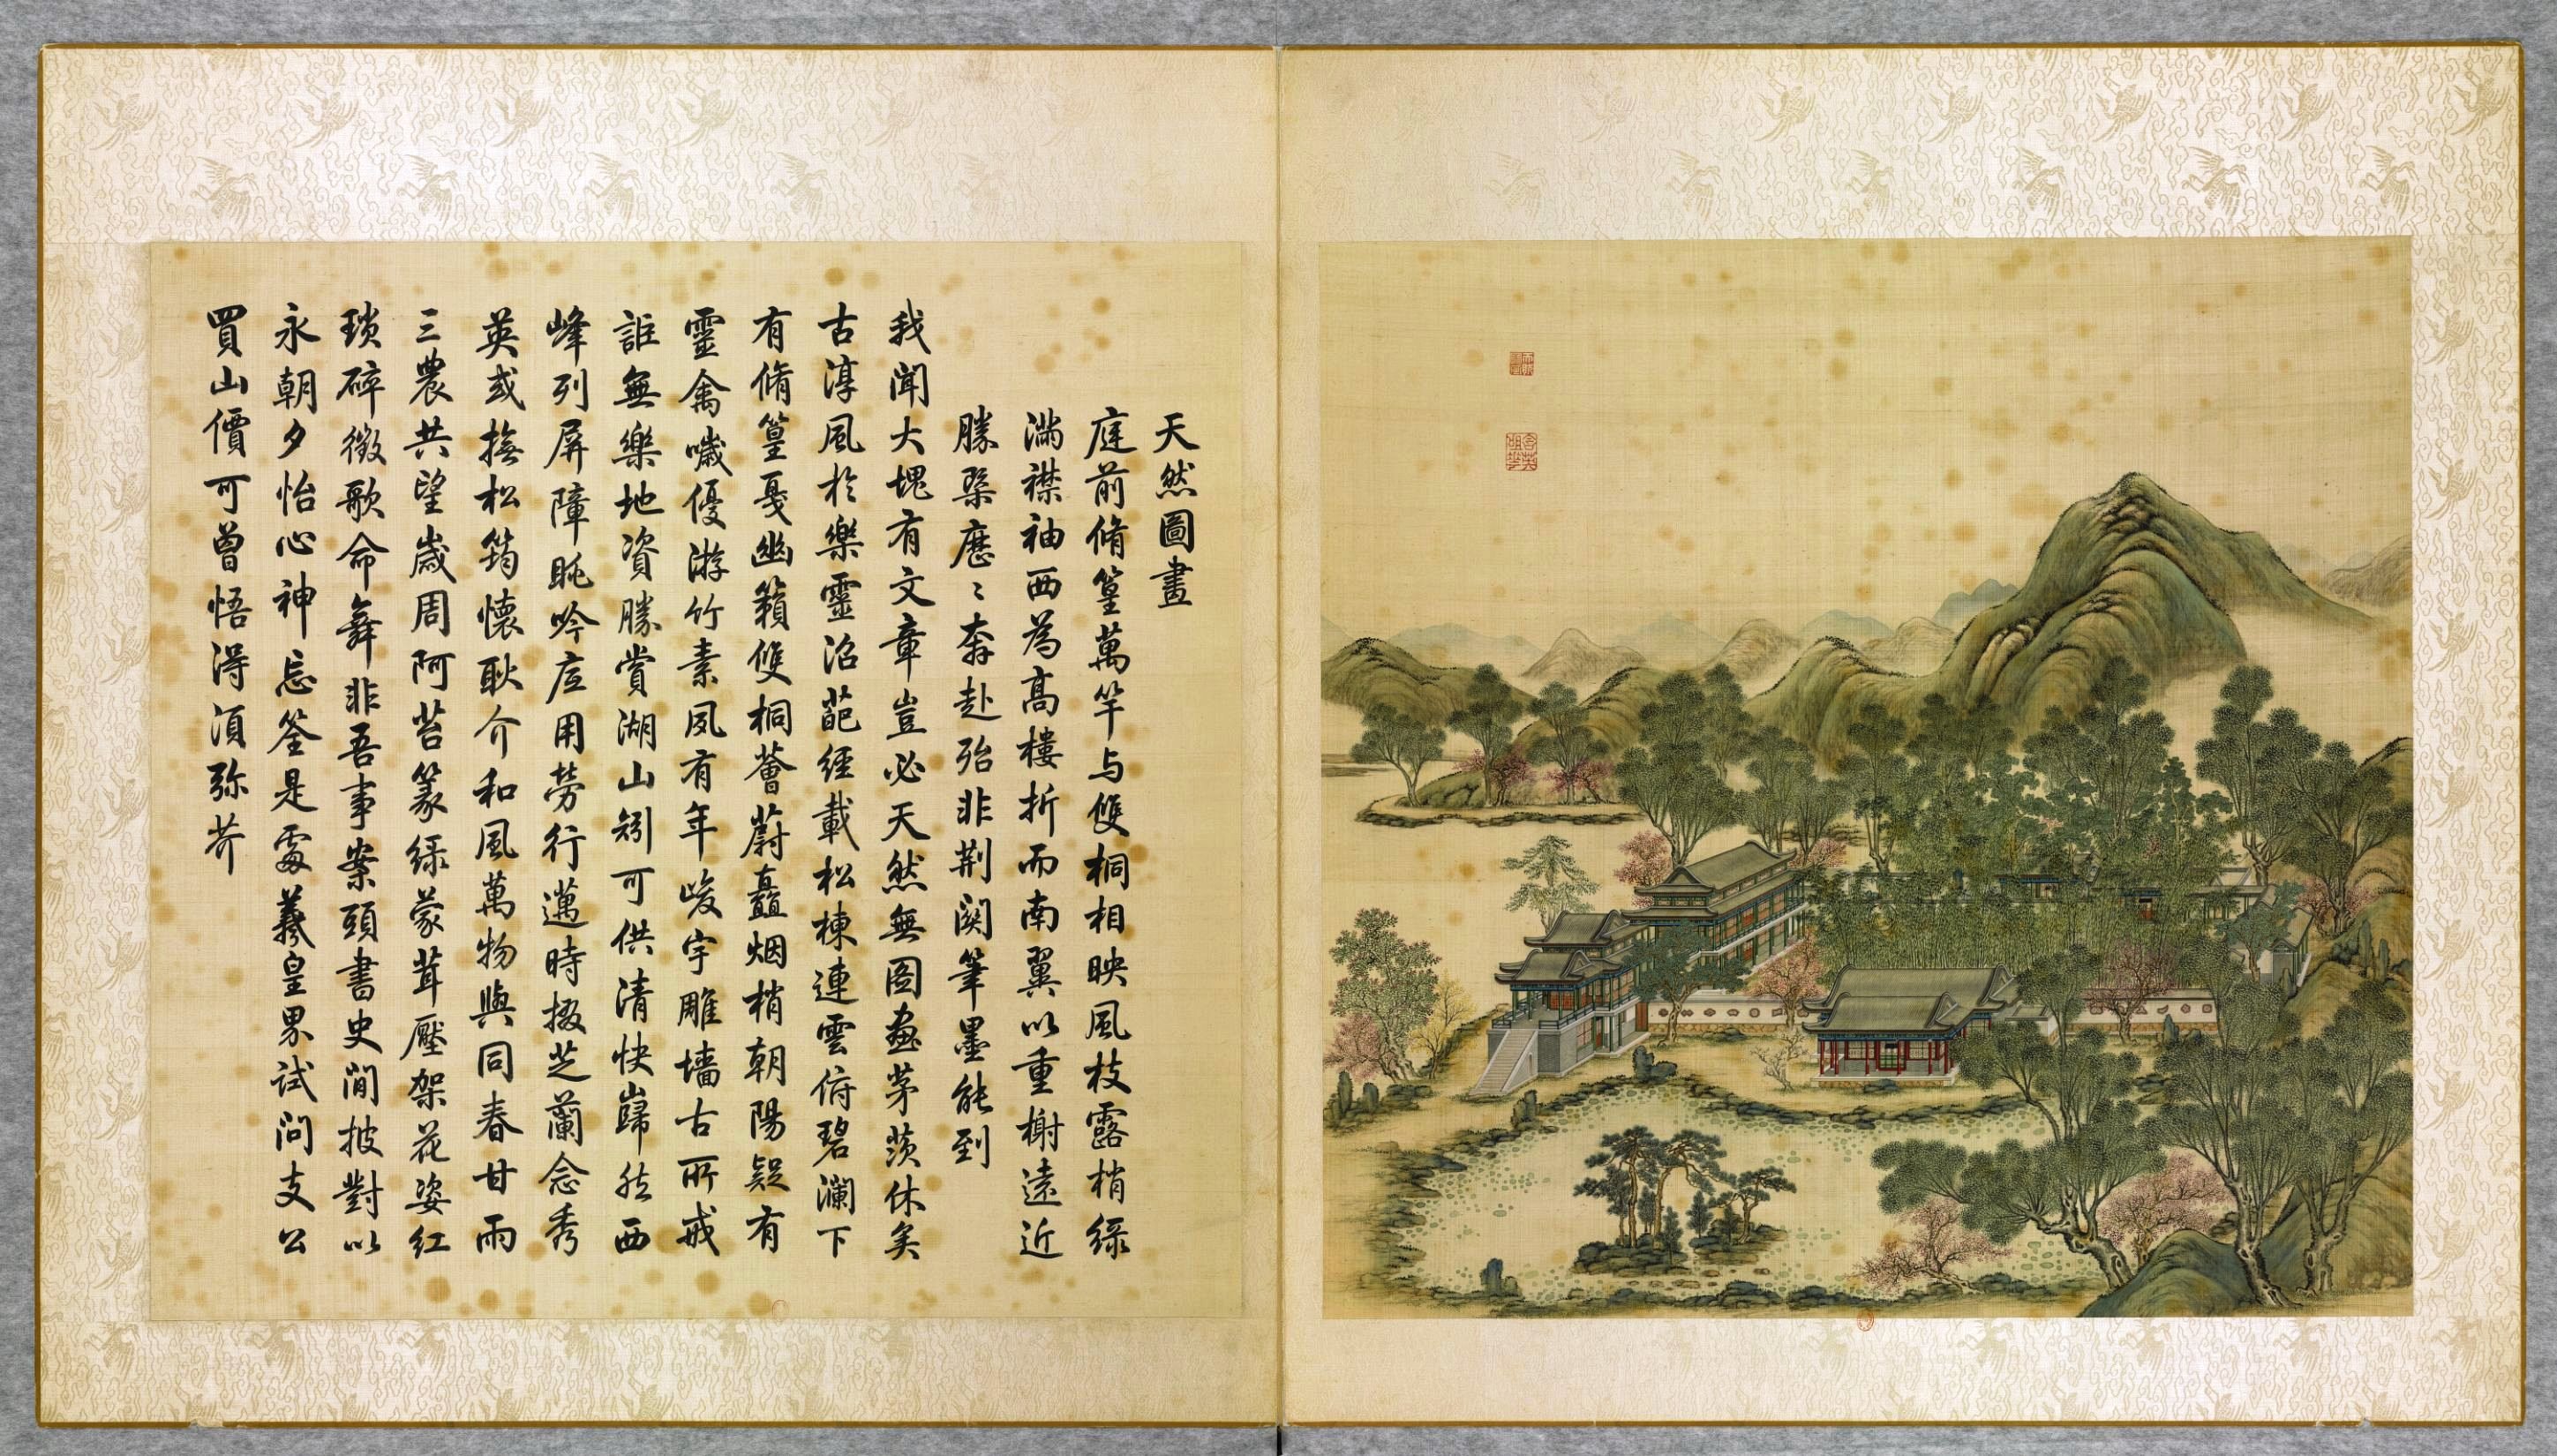 天然圖畫
庭前脩篁萬竿与雙桐相映風枝露梢綠
滿襟袖西為高樓折而南翼以重榭遠近
勝槩歷〻奔赴殆非荆関筆墨能到
我聞大塊有文章豈必天然無图画茅茨休矣
古淳風於樂靈沼葩經載松棟連雲俯碧瀾下
有脩篁戛幽籟雙桐薈蔚矗烟梢朝陽疑有
靈禽噦優游竹素夙有年峻宇雕墻古所戒
詎無樂地資勝賞湖山矧可供清快巋然西
峰列屏障眺吟底用勞行邁時掇芝蘭念秀
英或撫松筠懷耿介和風萬物與同春甘雨
三農共望歲周阿苔篆綠蒙茸壓架花姿紅
瑣碎徵歌命舞非吾事案頭書史閒披對以
永朝夕怡心神忘筌是處羲皇界試問支公
買山價可曾悟得須弥芥